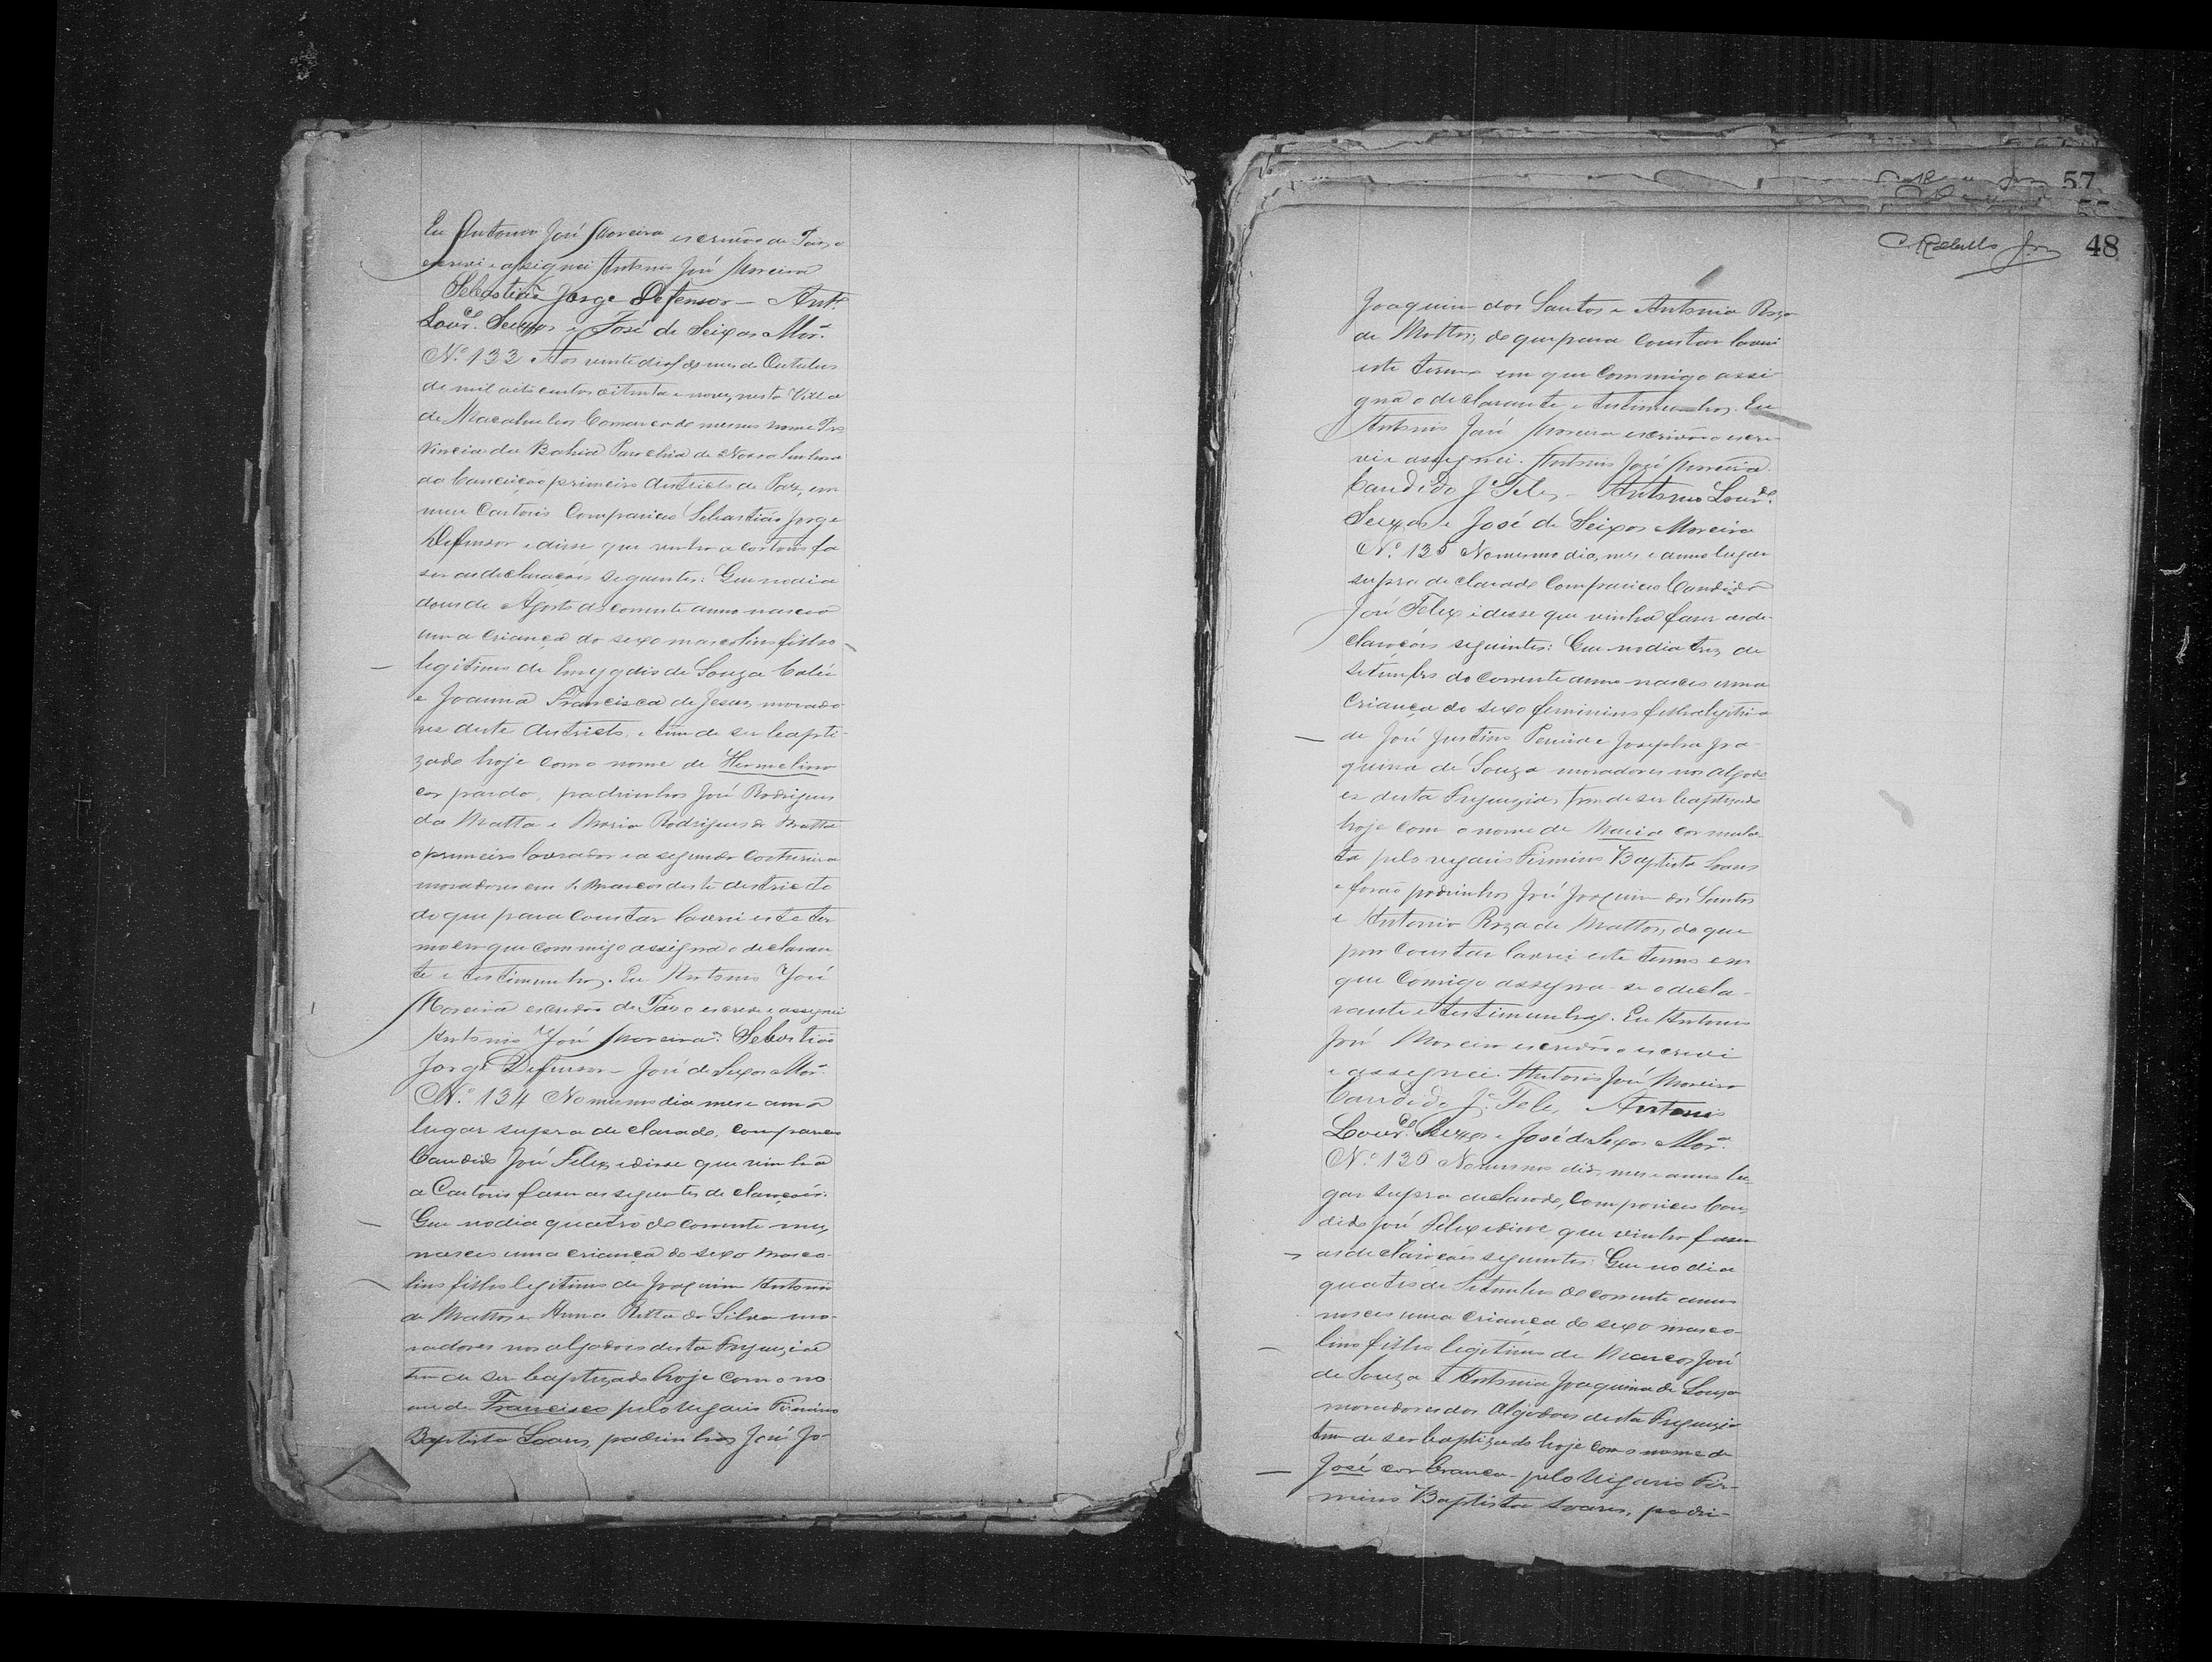 Eu Antonio José Moreira escrivão de Paz, o
escrevi e assignei Antonio José Moreira
Sebastião Jorge Defensor — Antº
Lourço Seixas e José de Seixas Morª
Nº 133 Aos vinte dias do mes de Outubro
de mil oito centos oitenta e nove, nesta Villa
de Macahubas Comarca do mesmo nome Pro
vincia da Bahia Parochia de Nossa Senhora
da Conceição primeiro districto de Paz, em
meu Cartorio Compareceo Sebastião Jorge
Defensor e disse que vinha a cartorio fa
ser as declaraçoes seguintes: Que no dia
dous de Agosto do corrente anno nasceo
uma criança do sexo mascolino filho
legitimo de Emygdio de Souza
e Joanna Francisca de Jesus, morado
res deste districto, e tem de ser bapti
zado hoje com o nome de Hermelino
cor pardo, padrinhos José Rodrigues
da Matta e Maria Rodrigues da Matta
o primeiro lavrador e a segunda costureira
moradores em S. Marcos deste districto
do que para constar lavrei este ter
mo em que commigo assigna o declaran
te e testimunhas. Eu Antonio José
Moreira escrivão de Paz o escrevi e assignei
Antonio José Moreira. Sebastião
Jorge Defensor — José de Seixas Morª
Nº 134 No mesmo dia mes e anno
lugar supra declarado, compareceo
Candido José Felix e disse que vinha
a Cartorio faser as seguintes declaraçoés.
Que no dia quatro do corrente mes,
nasceo uma criança do sexo masco-
lino filho legitimo de Joaquim Antonio
de Mattos e Anna Ritta da Silva mo-
radores nos algodois desta Freguezia
tem de ser baptizado hoje com o no
me de Francisco pelo vigario Firmino
Baptista Soares, padrinhos José Jo-
Rabello Jor 48
57
Joaquim dos Santos e Antonia Roza
de Mattos, do que para constar lavrei
este termo em que commigo assi-
gna o declarante e testimunhas. Eu
Antonio José Moreira escrivão o escre
vi e assignei. Antonio José Moreira.
Candido Jé Felis — Antonio Lourço
Seixas e José de Seixas Moreira
Nº 135 No mesmo dia, mes e anno lugar
supra declarado Compareceo Candido
José Felix e disse que vinha faser as de-
claraçoés seguintes: Que no dia tres de
Setembro do corrente anno nasceo uma
criança do sexo feminino filha legitima
de José Justino Pereira e Josepha Joa-
quina de Souza moradores nos algodo
es desta Freguezia, tem de ser baptizada
hoje com o nome de Maria cor mula-
ta pelo vigario Firmino Baptista Soares
e forão padrinhos José Joaquim dos Santos
e Antonia Roza de Mattos, do que
para constar lavrei este termo em
que comigo assigna-se o decla-
rante e testimunhas. Eu Antonio
José Moreira escrivão o escrevi
e assignei. Antonio José Moreira
Candido Jé Felis, Antonio
Lourço Seixas e José de Seixas Morª
Nº 136 No mesmo dia, mes e anno lu-
gar supra declarado, compareceo Can
dido José Felix e disse que vinha faser
as declaraçoés seguintes: Que no dia
quatro de Setembro do corrente anno
nasceo uma criança do sexo masco-
lino filho legitimo de Marcos José
de Souza e Antonia Joaquina de Souza
moradores dos Algodoes desta Freguezia
tem de ser baptizado hoje com o nome de
José cor branca pelo Vigario Fir-
mino Baptista Soares, padri-